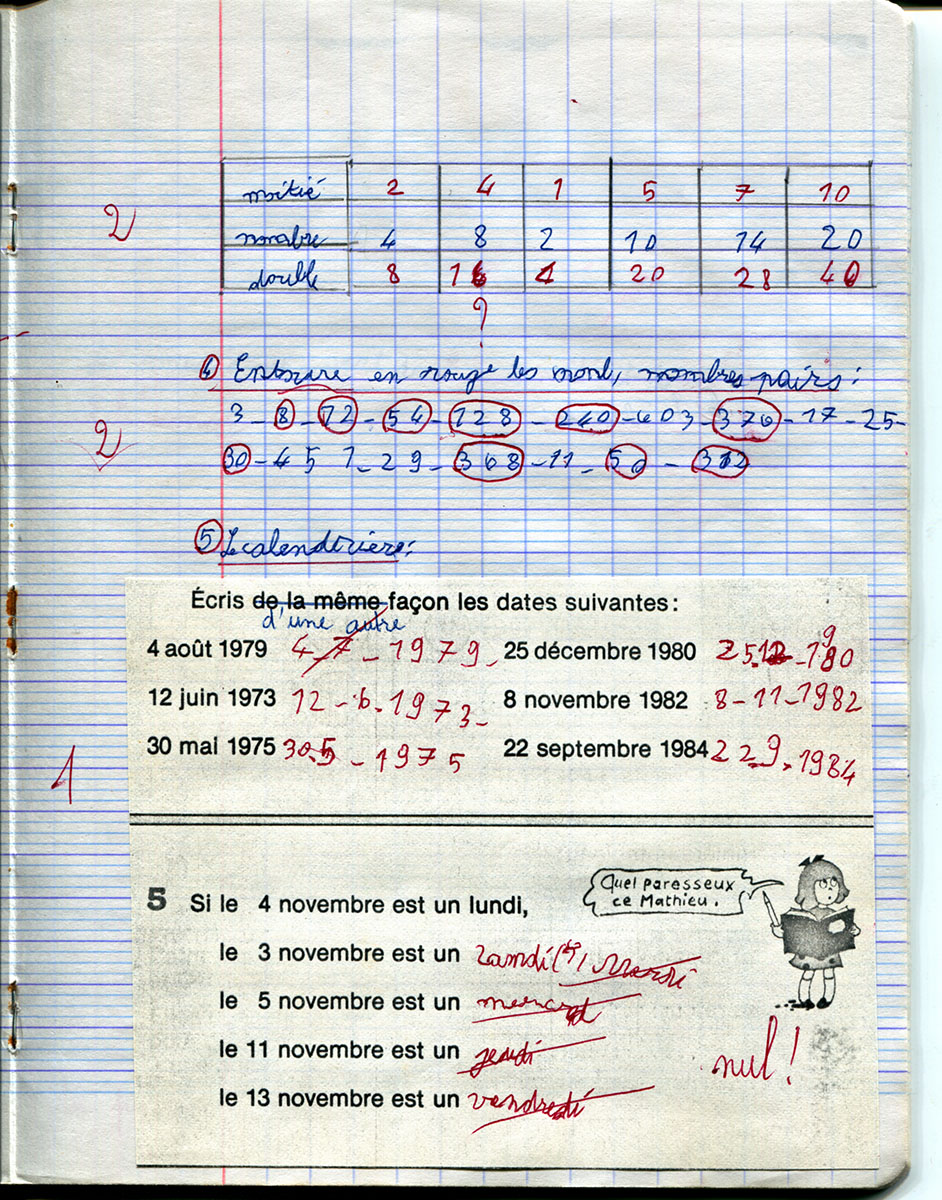 moitié 2 4 1 5 7 10
2
nombre 4 8 2 10 14 20
double 8 16 4 20 28 40
?
4 Entoure en rouge les nombres pairs :
3 - 8 - 72 - 54 - 128 - 240 - 603 - 376 - 17 - 25 -
2
30 - 45 1 - 29 - 368 - 11 - 52 - 312
5 Le calendrière :
Écris de la même façon les dates suivantes :
d'une autre
4 août 1979 4 - 7 - 1979 - 25 décembre 1980 25.12 - 1980
12 juin 1973 12 - 6 - 1973 - 8 novembre 1982 8 - 11 - 1982
30 mai 1975 30.5 - 1975 22 septembre 1984 22.9.1984
1
Quel paresseux
ce Mathieu.
5 Si le 4 novembre est un lundi,
le 3 novembre est un samdi Mardi
le 5 novembre est un
le 11 novembre est un jeudi
nul !
le 13 novembre est un vendredi